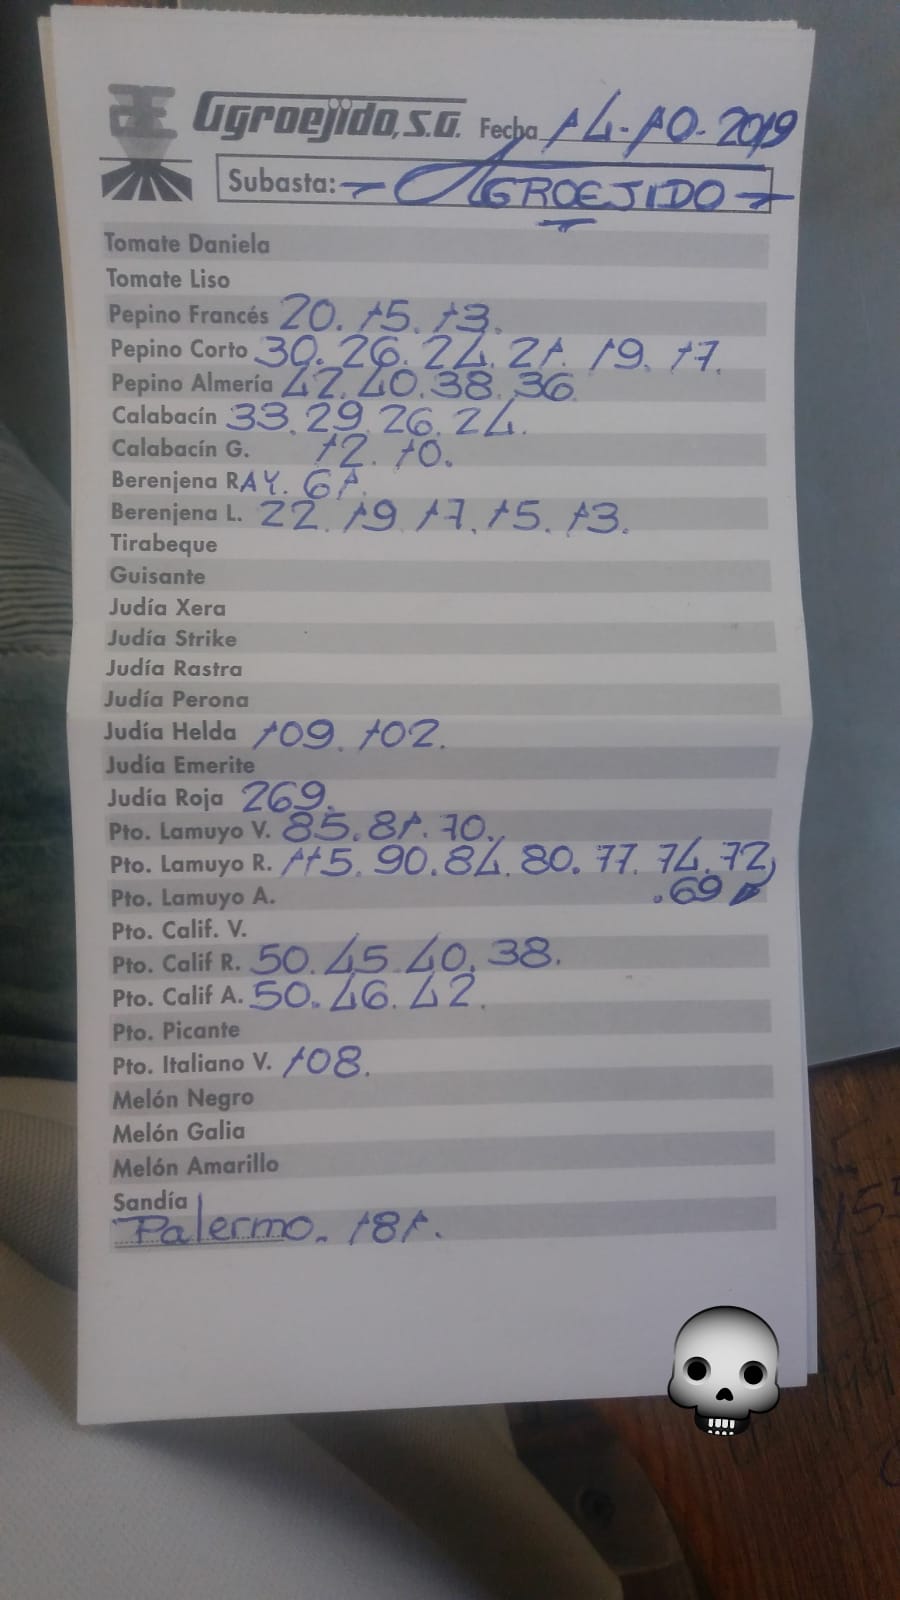 Agroejido, S.A. Fecha 14-10-2019
Subasta: - AGROEJIDO -
Tomate Daniela
Tomate Liso
Pepino Francés 20. 15. 13.
Pepino Corto 30. 26. 24. 21. 19. 17.
Pepino Almería 42. 40. 38. 36
Calabacín 33. 29. 26. 24.
Calabacín G. 12. 10.
Berenjena RAY. 61.
Berenjena L. 22. 19. 17. 15. 13.
Tirabeque
Guisante
Judía Xera
Judía Strike
Judía Rastra
Judía Perona
Judía Helda 109. 102.
Judía Emerite
Judía Roja 269.
Pto. Lamuyo V. 85. 81. 70.
Pto. Lamuyo R. 115. 90. 84. 80. 77. 74. 72
Pto. Lamuyo A. .69
Pto. Calif. V.
Pto. Calif R. 50. 45. 40. 38.
Pto. Calif A. 50. 46. 42.
Pto. Picante
Pto. Italiano V. 108.
Melón Negro
Melón Galia
Melón Amarillo
Sandía
Palermo. 181.